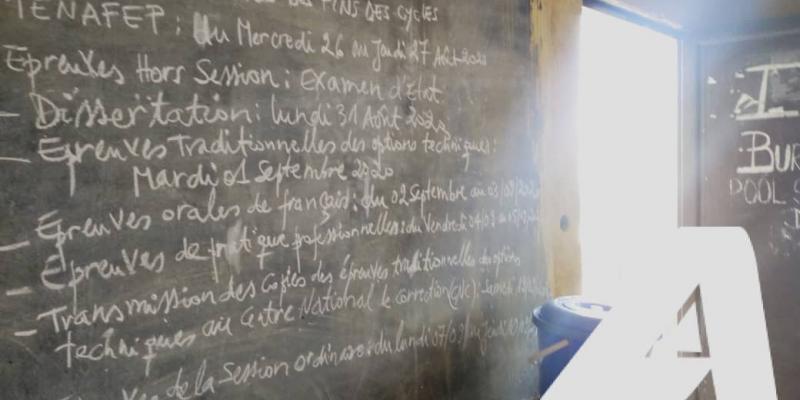 DES FINS DES CYCLES
TENAFEP : du Mercredi 26 au Jeudi 27 Août 2020
Epreuves Hors Session : Examen d'Etat
- Dissertation : lundi 31 Août 2020
- Epreuves Traditionnelles des options techniques :
Mardi 01 Septembre 2020
- Epreuves orales de français : du 02 Septembre au 03/09/2020
- Epreuves de pratique professionnelles : du Vendredi 04/09 au 05/09/
- Transmission des copies des épreuves traditionnelles des options
techniques au Centre National de correction (CNC) : Samedi
de la Session ordinaire : du lundi 07/09 au Jeudi
I
BUR
POOL S
A